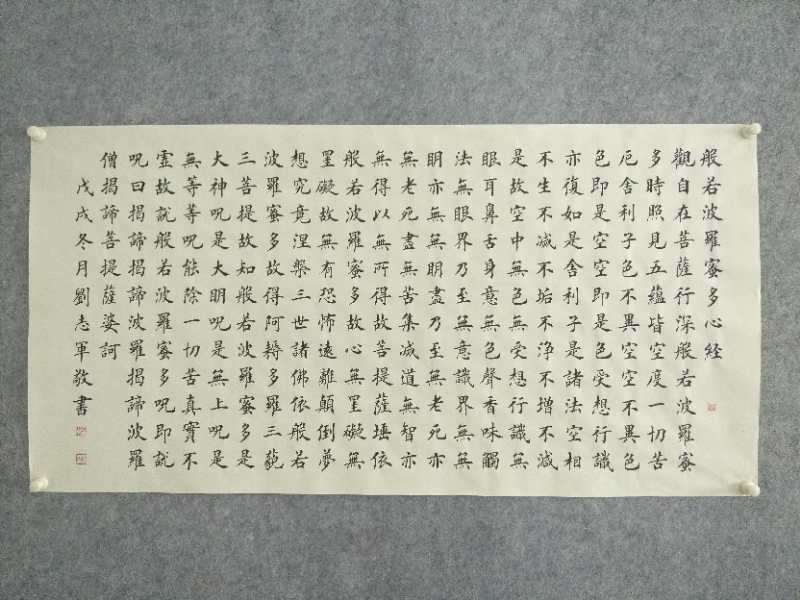 般若波羅蜜多心経
觀自在菩薩行深般若波羅蜜
多時照見五蘊皆空度一切苦
厄舍利子色不異空空不異色
色即是空空即是色受想行識
亦復如是舍利子是諸法空相
不生不减不垢不淨不增不减
是故空中無色無受想行識無
眼耳鼻舌身意無色聲香味觸
法無眼界乃至無意識界無無
明亦無無明盡乃至無老死亦
無老死盡無苦集减道無智亦
無得以無所得故菩提薩埵依
般若波羅蜜多故心無罣礙無
罣礙故無有恐怖遠離顛倒夢
想究竟涅槃三世諸佛依般若
波羅蜜多故得阿耨多羅三藐
三菩提故知般若波羅蜜多是
大神呪是大明呪是無上呪是
無等等呪能除一切苦真實不
虛故說般若波羅蜜多呪即說
呪曰揭諦揭諦波羅揭諦波羅
僧揭諦菩提薩婆訶
戊戌冬月劉志軍敬書